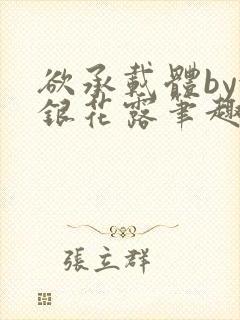 欲承載體by
銀花露筆趣
張立群